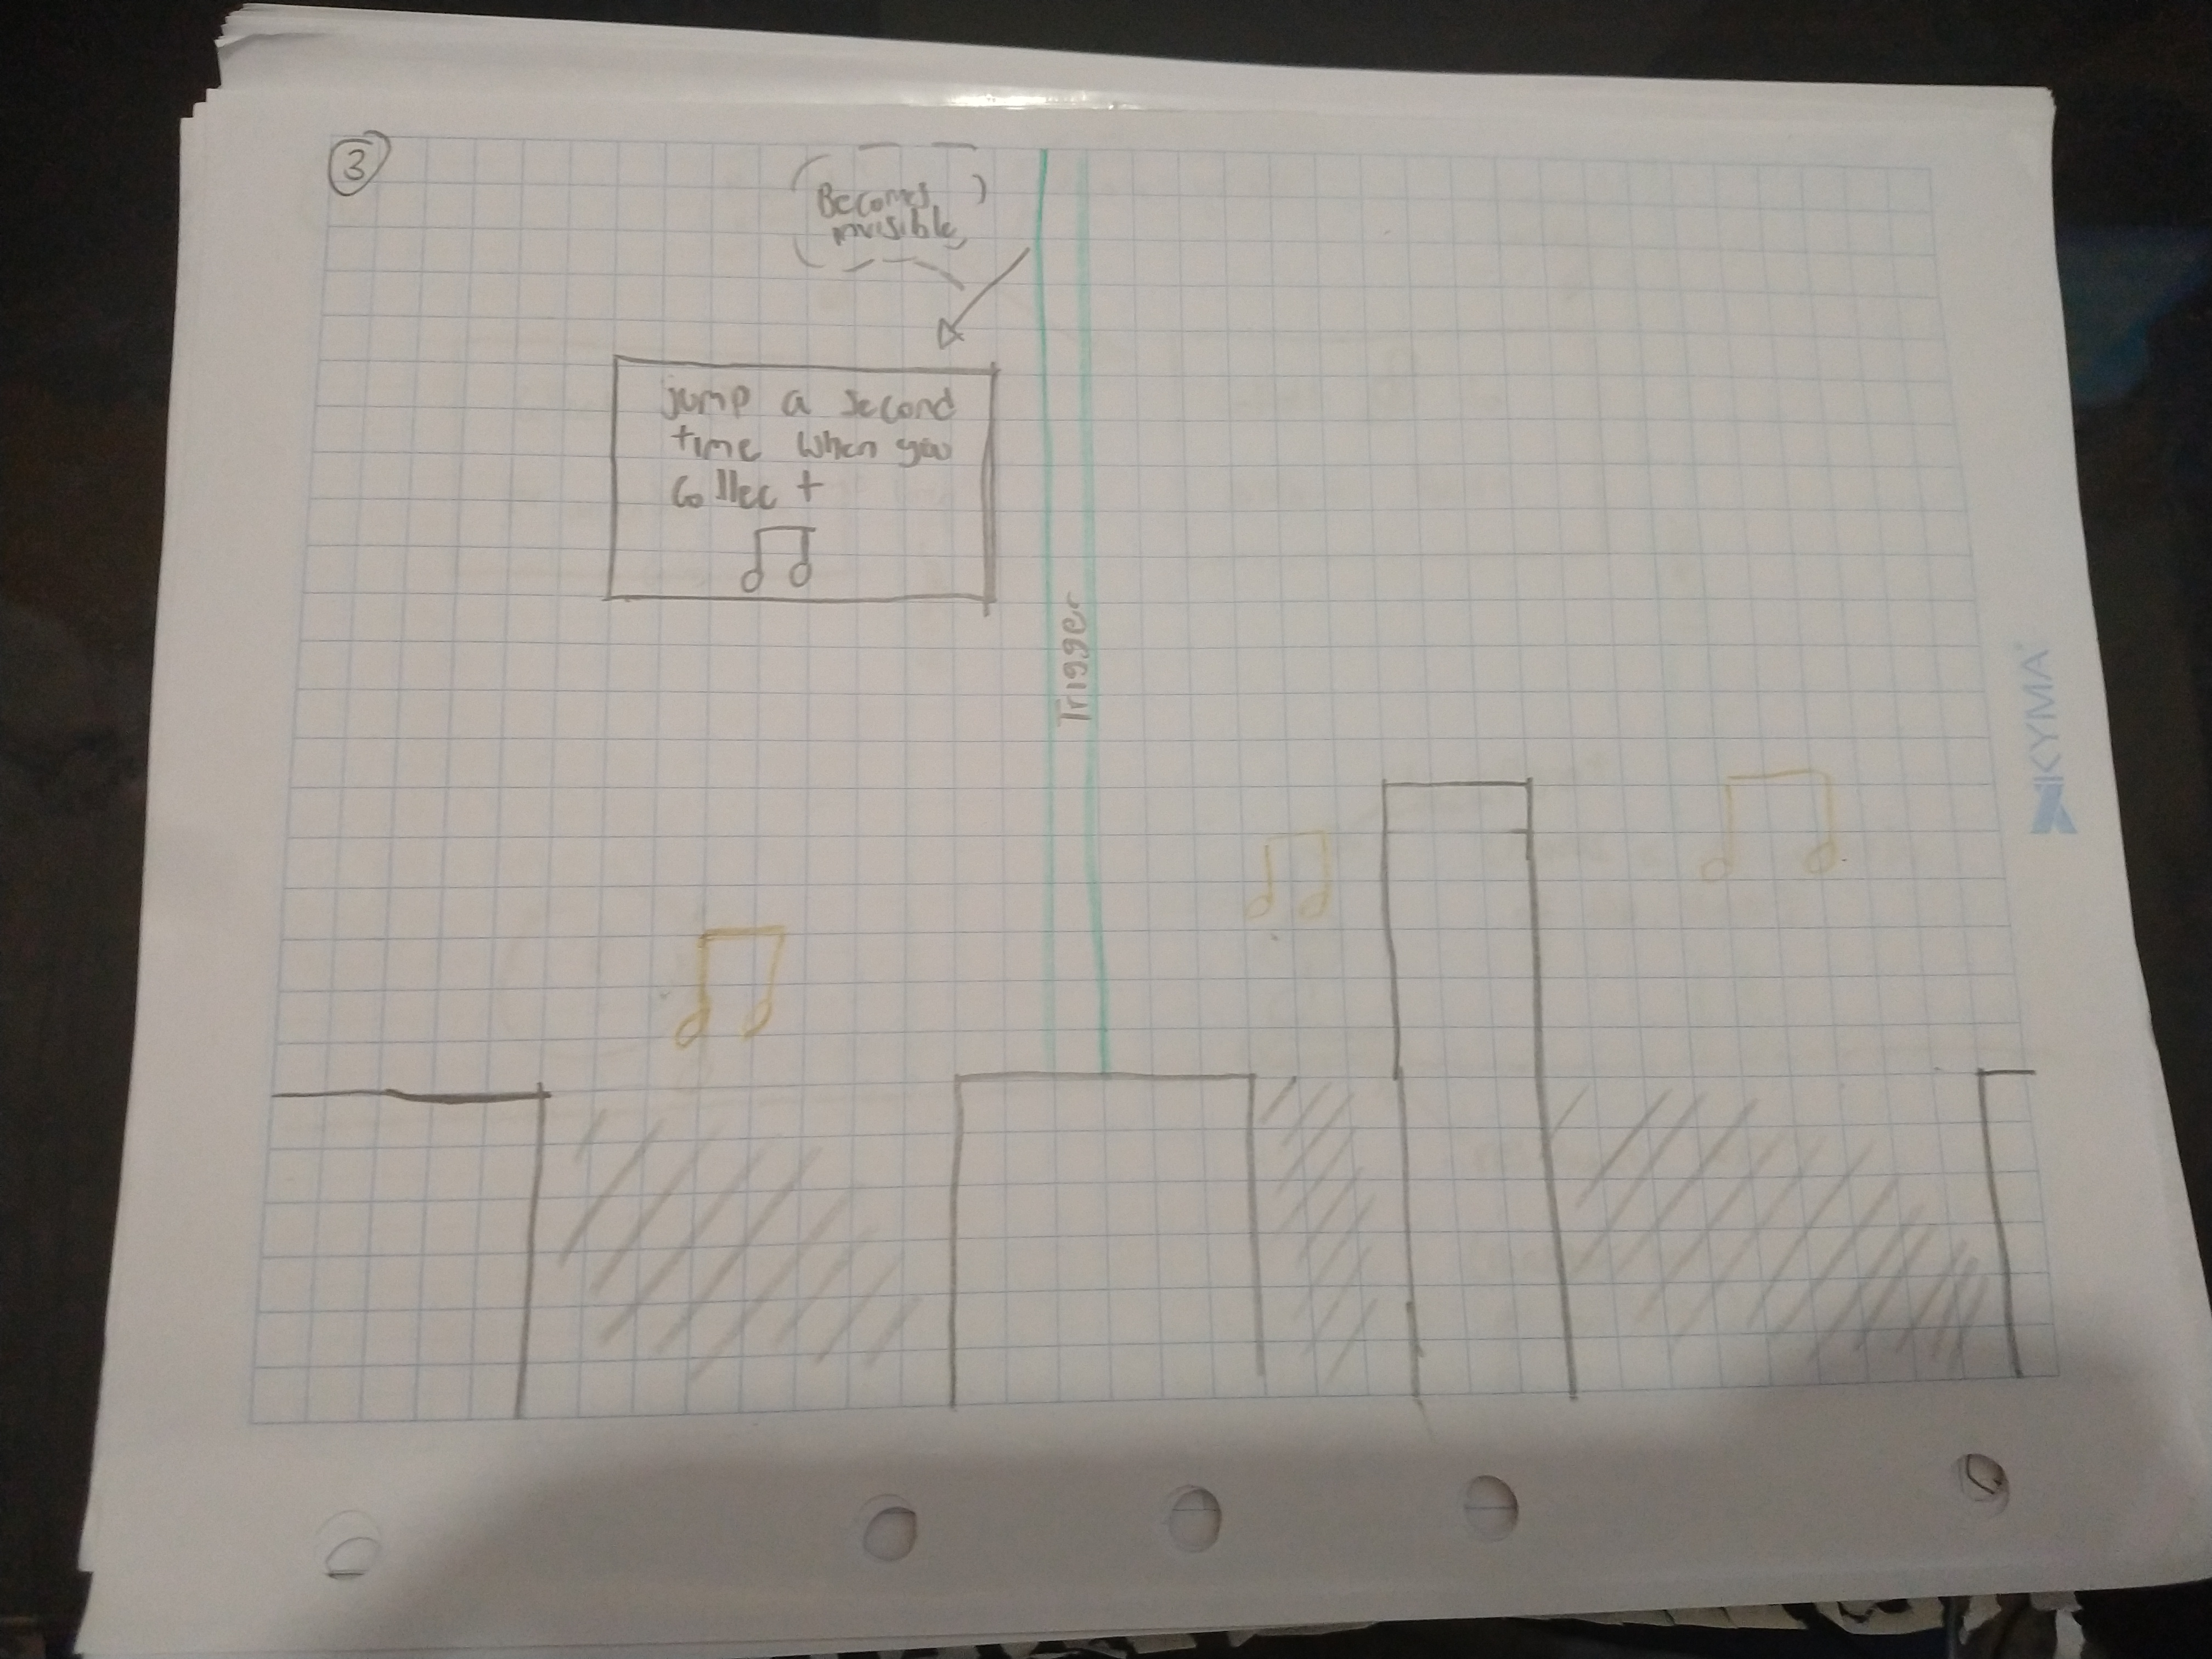 3
Becomes
invisible
jump a second
time when you
collect
Trigger
KYMA